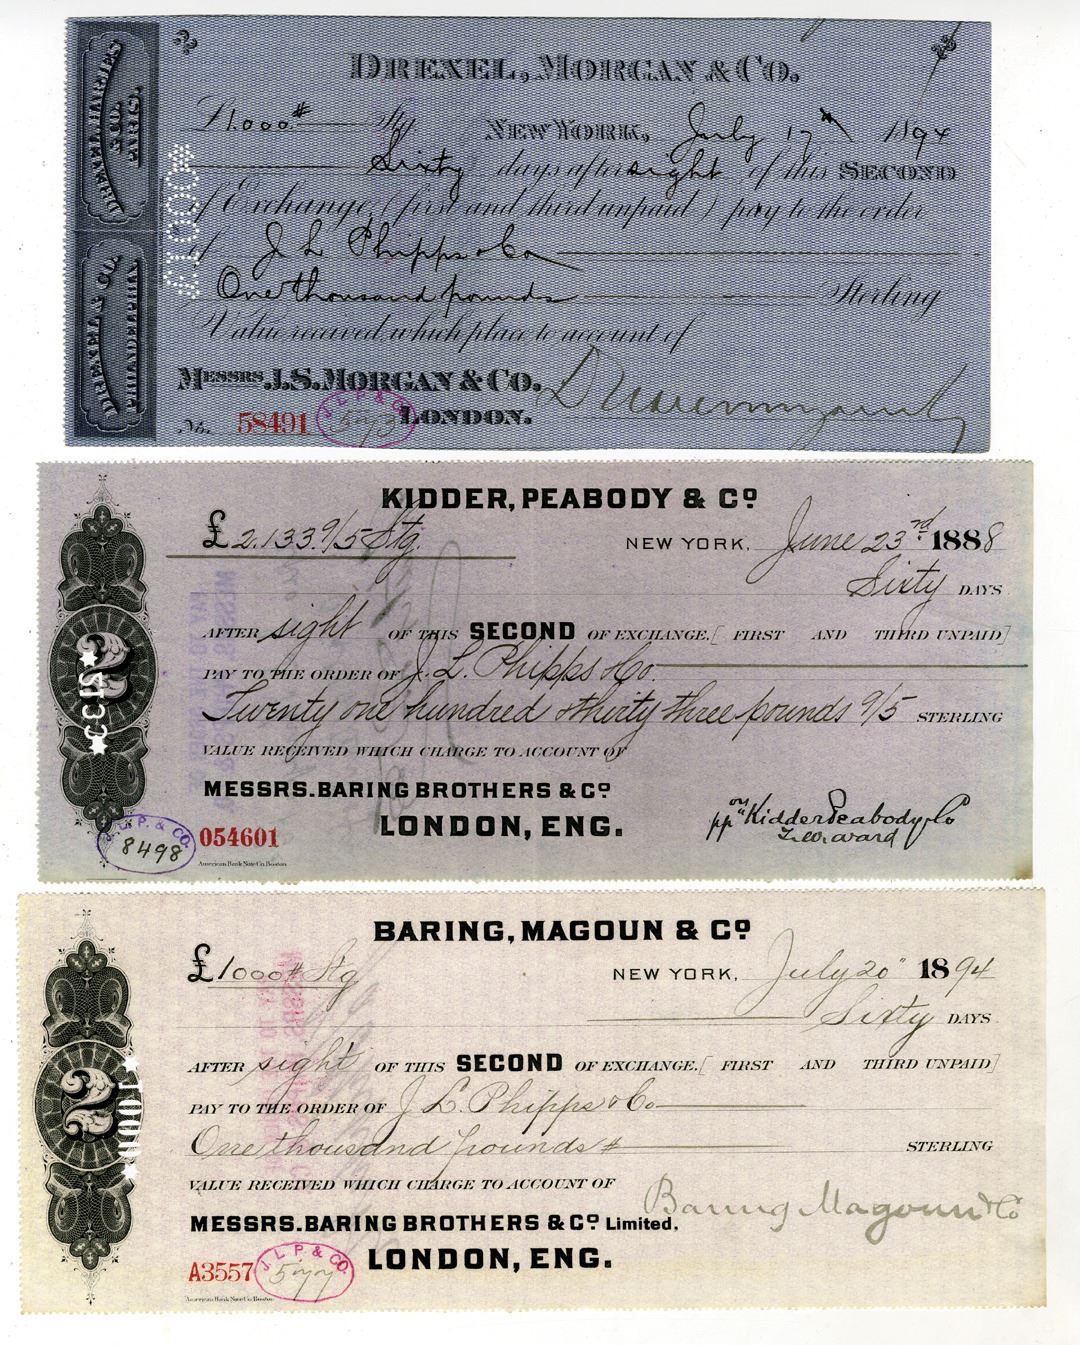 DREXEL, HARJES & CO. PARIS.
DREXEL & CO. PHILADELPHIA.
£1000
DREXEL, MORGAN & CO.
£1.000.# Stg
NEW YORK, July 17th 1894
Sixty days after sight of this SECOND
of Exchange, (first and third unpaid) pay to the order
of J L Phipps & Co
One thousand pounds Sterling
Value received, which place to account of
MESSRS. J.S. MORGAN & CO.
No. 58491 J L P & CO LONDON.
KIDDER, PEABODY & Co.
£ 2.133.9/5 Stg. NEW YORK, June 23rd 1888
Sixty DAYS
AFTER sight OF THIS SECOND OF EXCHANGE. [FIRST AND THIRD UNPAID]
PAY TO THE ORDER OF J. L. Phipps & Co.
Twenty one hundred & thirty three pounds 9/5 STERLING
VALUE RECEIVED WHICH CHARGE TO ACCOUNT OF
MESSRS. BARING BROTHERS & Co.
LONDON, ENG.
2
2133
pp Kidder Peabody & Co
J. L. P. & CO.
8498
054601
American Bank Note Co. Boston.
BARING, MAGOUN & Co.
£1000# Stg
NEW YORK, July 20" 1894
Sixty DAYS
AFTER sight OF THIS SECOND OF EXCHANGE. [FIRST AND THIRD UNPAID]
PAY TO THE ORDER OF J L. Phipps & Co
One thousand pounds # STERLING
VALUE RECEIVED WHICH CHARGE TO ACCOUNT OF
MESSRS. BARING BROTHERS & Co. Limited.
Baring Magoun & Co
LONDON, ENG.
2
1000
A3557 J L P & CO.
American Bank Note Co. Boston.